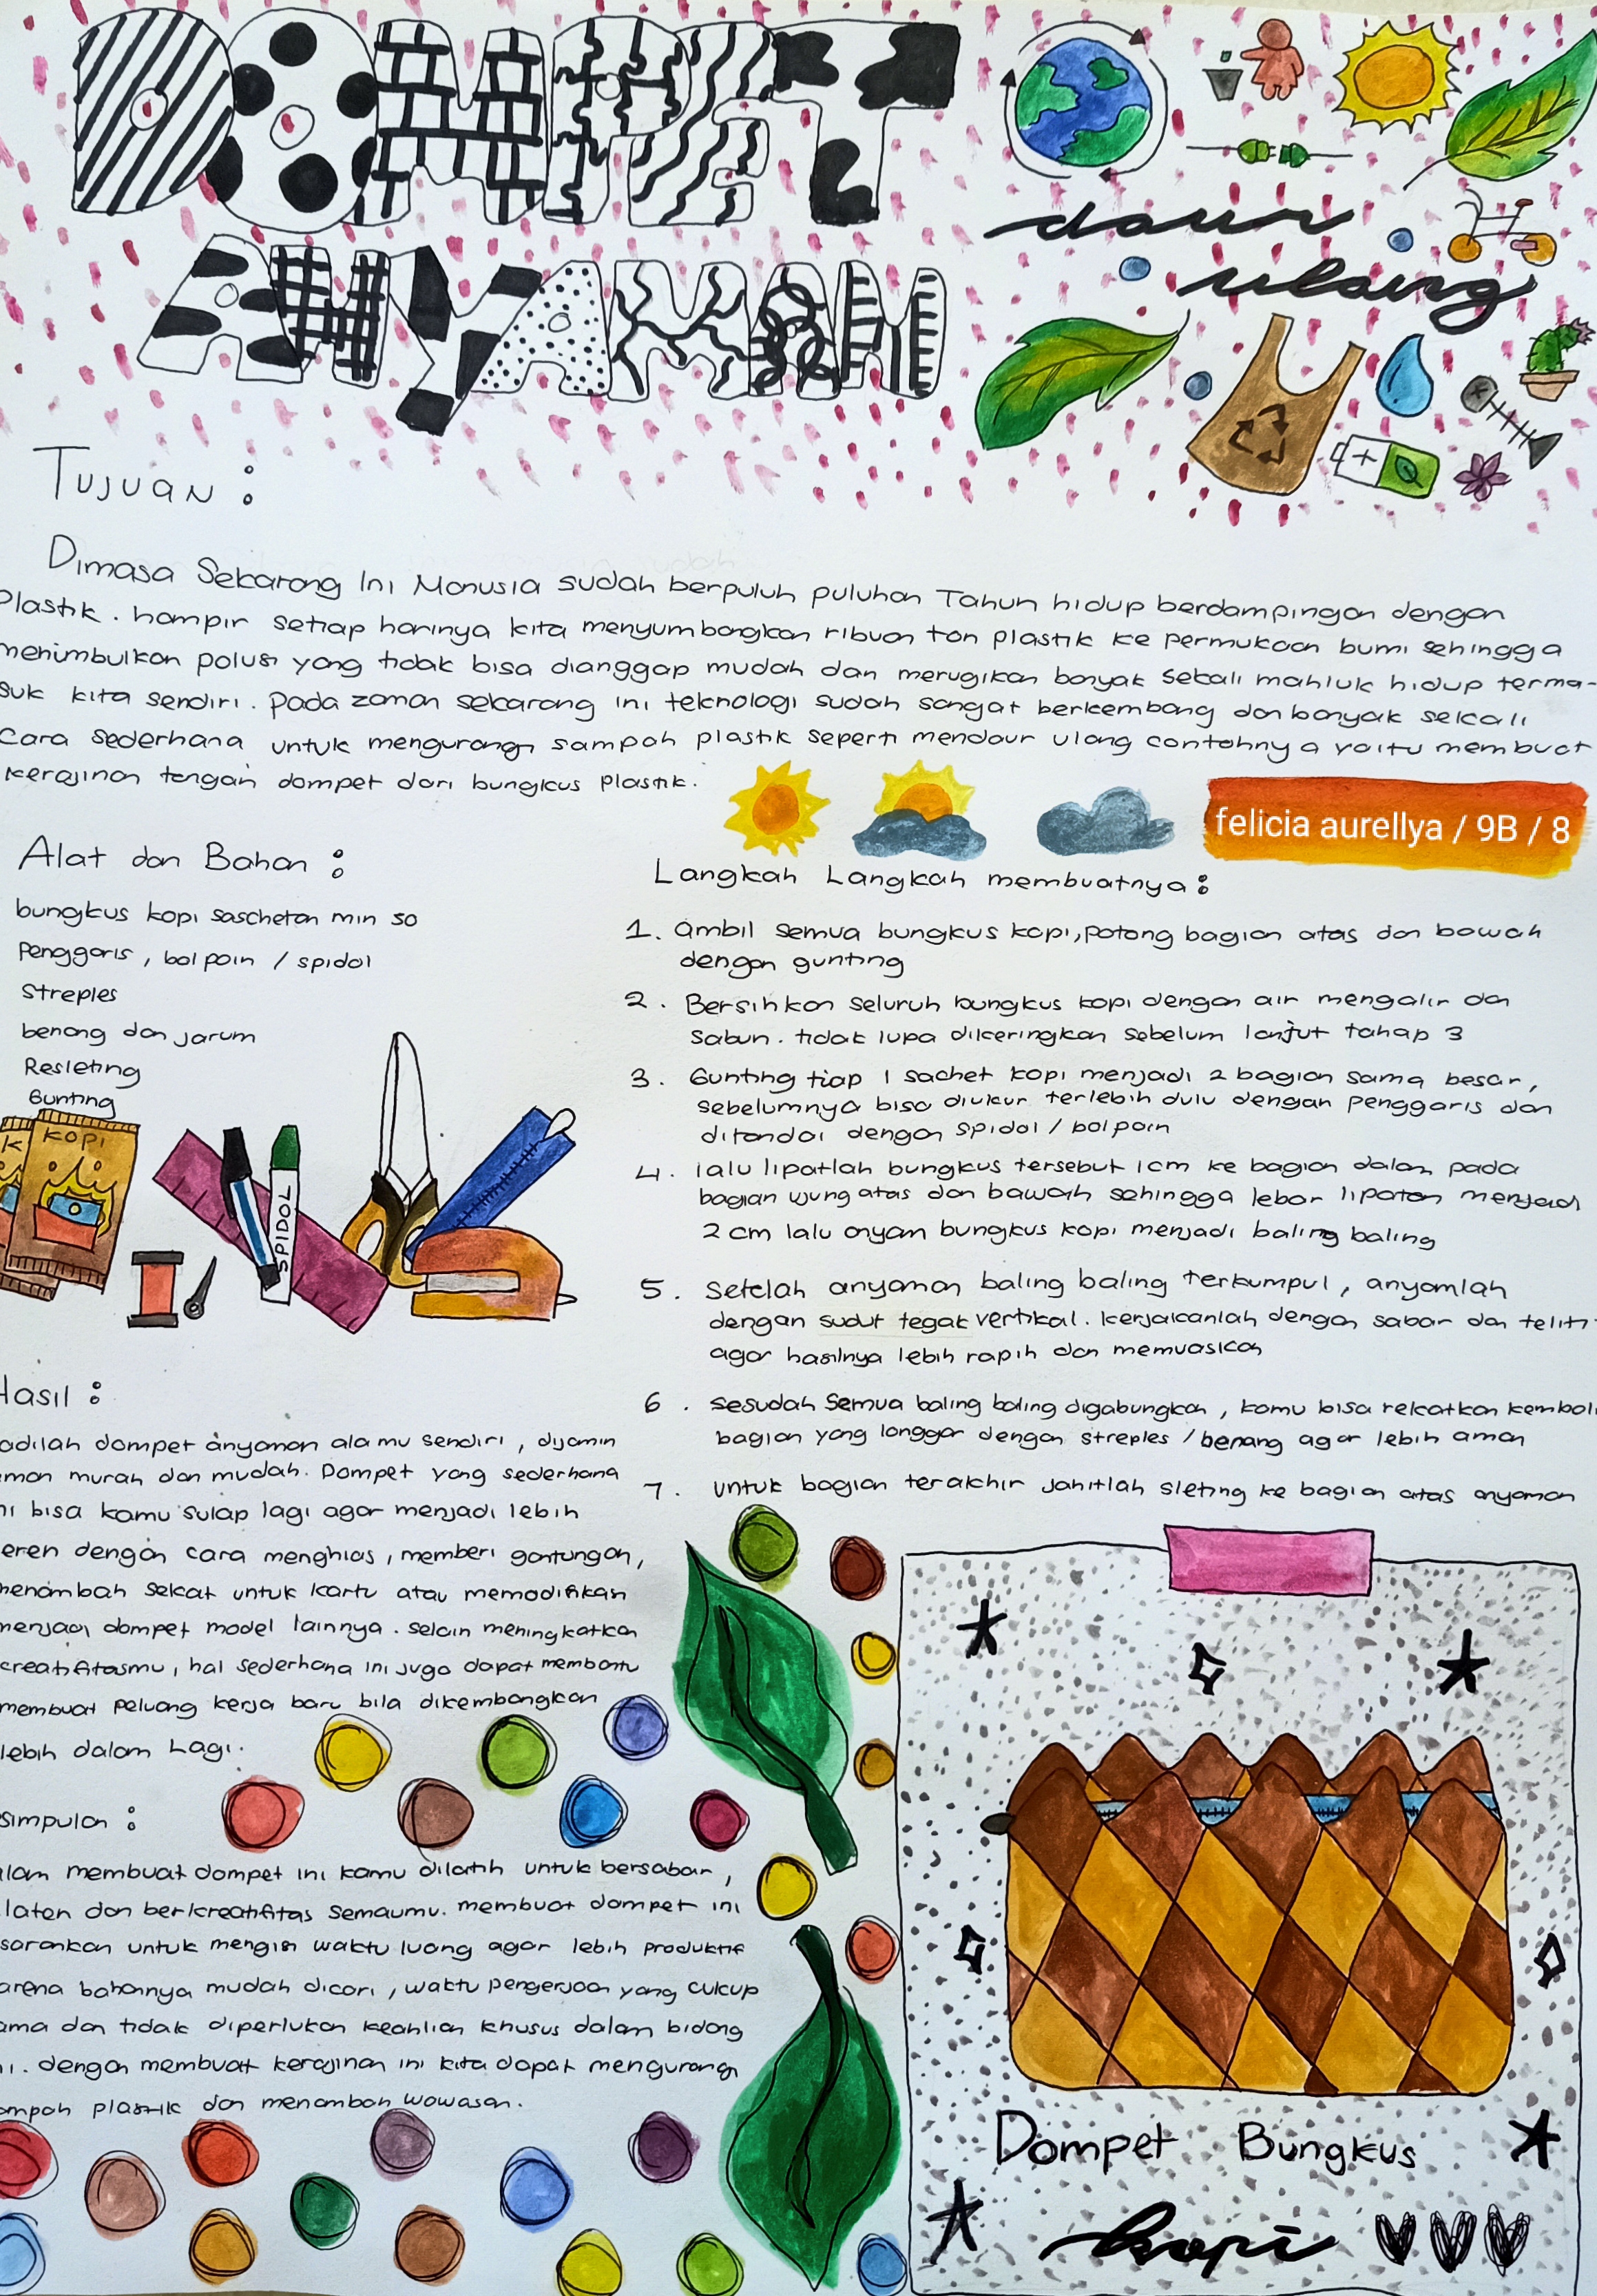 DOMPET
ANYAMAN
daur
ulang
Tujuan :
Dimasa Sekarang Ini Manusia sudah berpuluh puluhan Tahun hidup berdampingan dengan
Plastik. hampir setiap harinya kita menyumbangkan ribuan ton plastik ke permukaan bumi sehingga
menimbulkan polusi yang tidak bisa dianggap mudah dan merugikan banyak sekali mahluk hidup terma-
suk kita sendiri. Pada zaman sekarang ini teknologi sudah sangat berkembang dan banyak sekali
Cara sederhana untuk mengurangi sampah plastik seperti mendaur ulang contohnya yaitu membuat
kerajinan tangan dompet dari bungkus plastik.
felicia aurellya / 9B / 8
Alat dan Bahan :
bungkus kopi saschetan min 50
Penggaris, bolpoin / spidol
Streples
benang dan jarum
Resleting
Gunting
K
KOPI
SPIDOL
Langkah Langkah membuatnya :
1. ambil semua bungkus kopi, potong bagian atas dan bawah
dengan gunting
2. Bersihkan seluruh bungkus kopi dengan air mengalir dan
sabun. tidak lupa dikeringkan sebelum lanjut tahap 3
3. Gunting tiap 1 sachet kopi menjadi 2 bagian sama besar,
sebelumnya bisa diukur terlebih dulu dengan penggaris dan
ditandai dengan spidol / bolpoin
4. lalu lipatlah bungkus tersebut 1cm ke bagian dalam pada
bagian ujung atas dan bawah sehingga lebar lipatan menjadi
2 cm lalu anyam bungkus kopi menjadi baling baling
5. Setelah anyaman baling baling terkumpul, anyamlah
dengan sudut tegak vertikal. kerjakanlah dengan sabar dan teliti
agar hasilnya lebih rapih dan memuaskan
6. sesudah semua baling baling digabungkan, kamu bisa rekatkan kembali
bagian yang longgar dengan streples / benang agar lebih aman
7. untuk bagian terakhir jahitlah sleting ke bagian atas anyaman
Hasil :
adilah dompet anyaman ala mu sendiri, dijamin
man murah dan mudah. Dompet yang sederhana
ni bisa kamu sulap lagi agar menjadi lebih
eren dengan cara menghias, memberi gantungan,
menambah sekat untuk kartu atau memodifikasi
menjadi dompet model lainnya. selain meningkatkan
creatifitasmu, hal sederhana ini juga dapat membantu
membuat peluang kerja baru bila dikembangkan
lebih dalam Lagi.
simpulan :
alam membuat dompet ini kamu dilatih untuk bersabar,
laten dan berkreatifitas semaumu. membuat dompet ini
sarankan untuk mengisi waktu luang agar lebih produktif
arena bahannya mudah dicari, waktu pengerjaan yang cukup
ama dan tidak diperlukan keahlian khusus dalam bidang
ni. dengan membuat kerajinan ini kita dapat mengurangi
ampah plastik dan menambah wawasan.
Dompet Bungkus
kopi